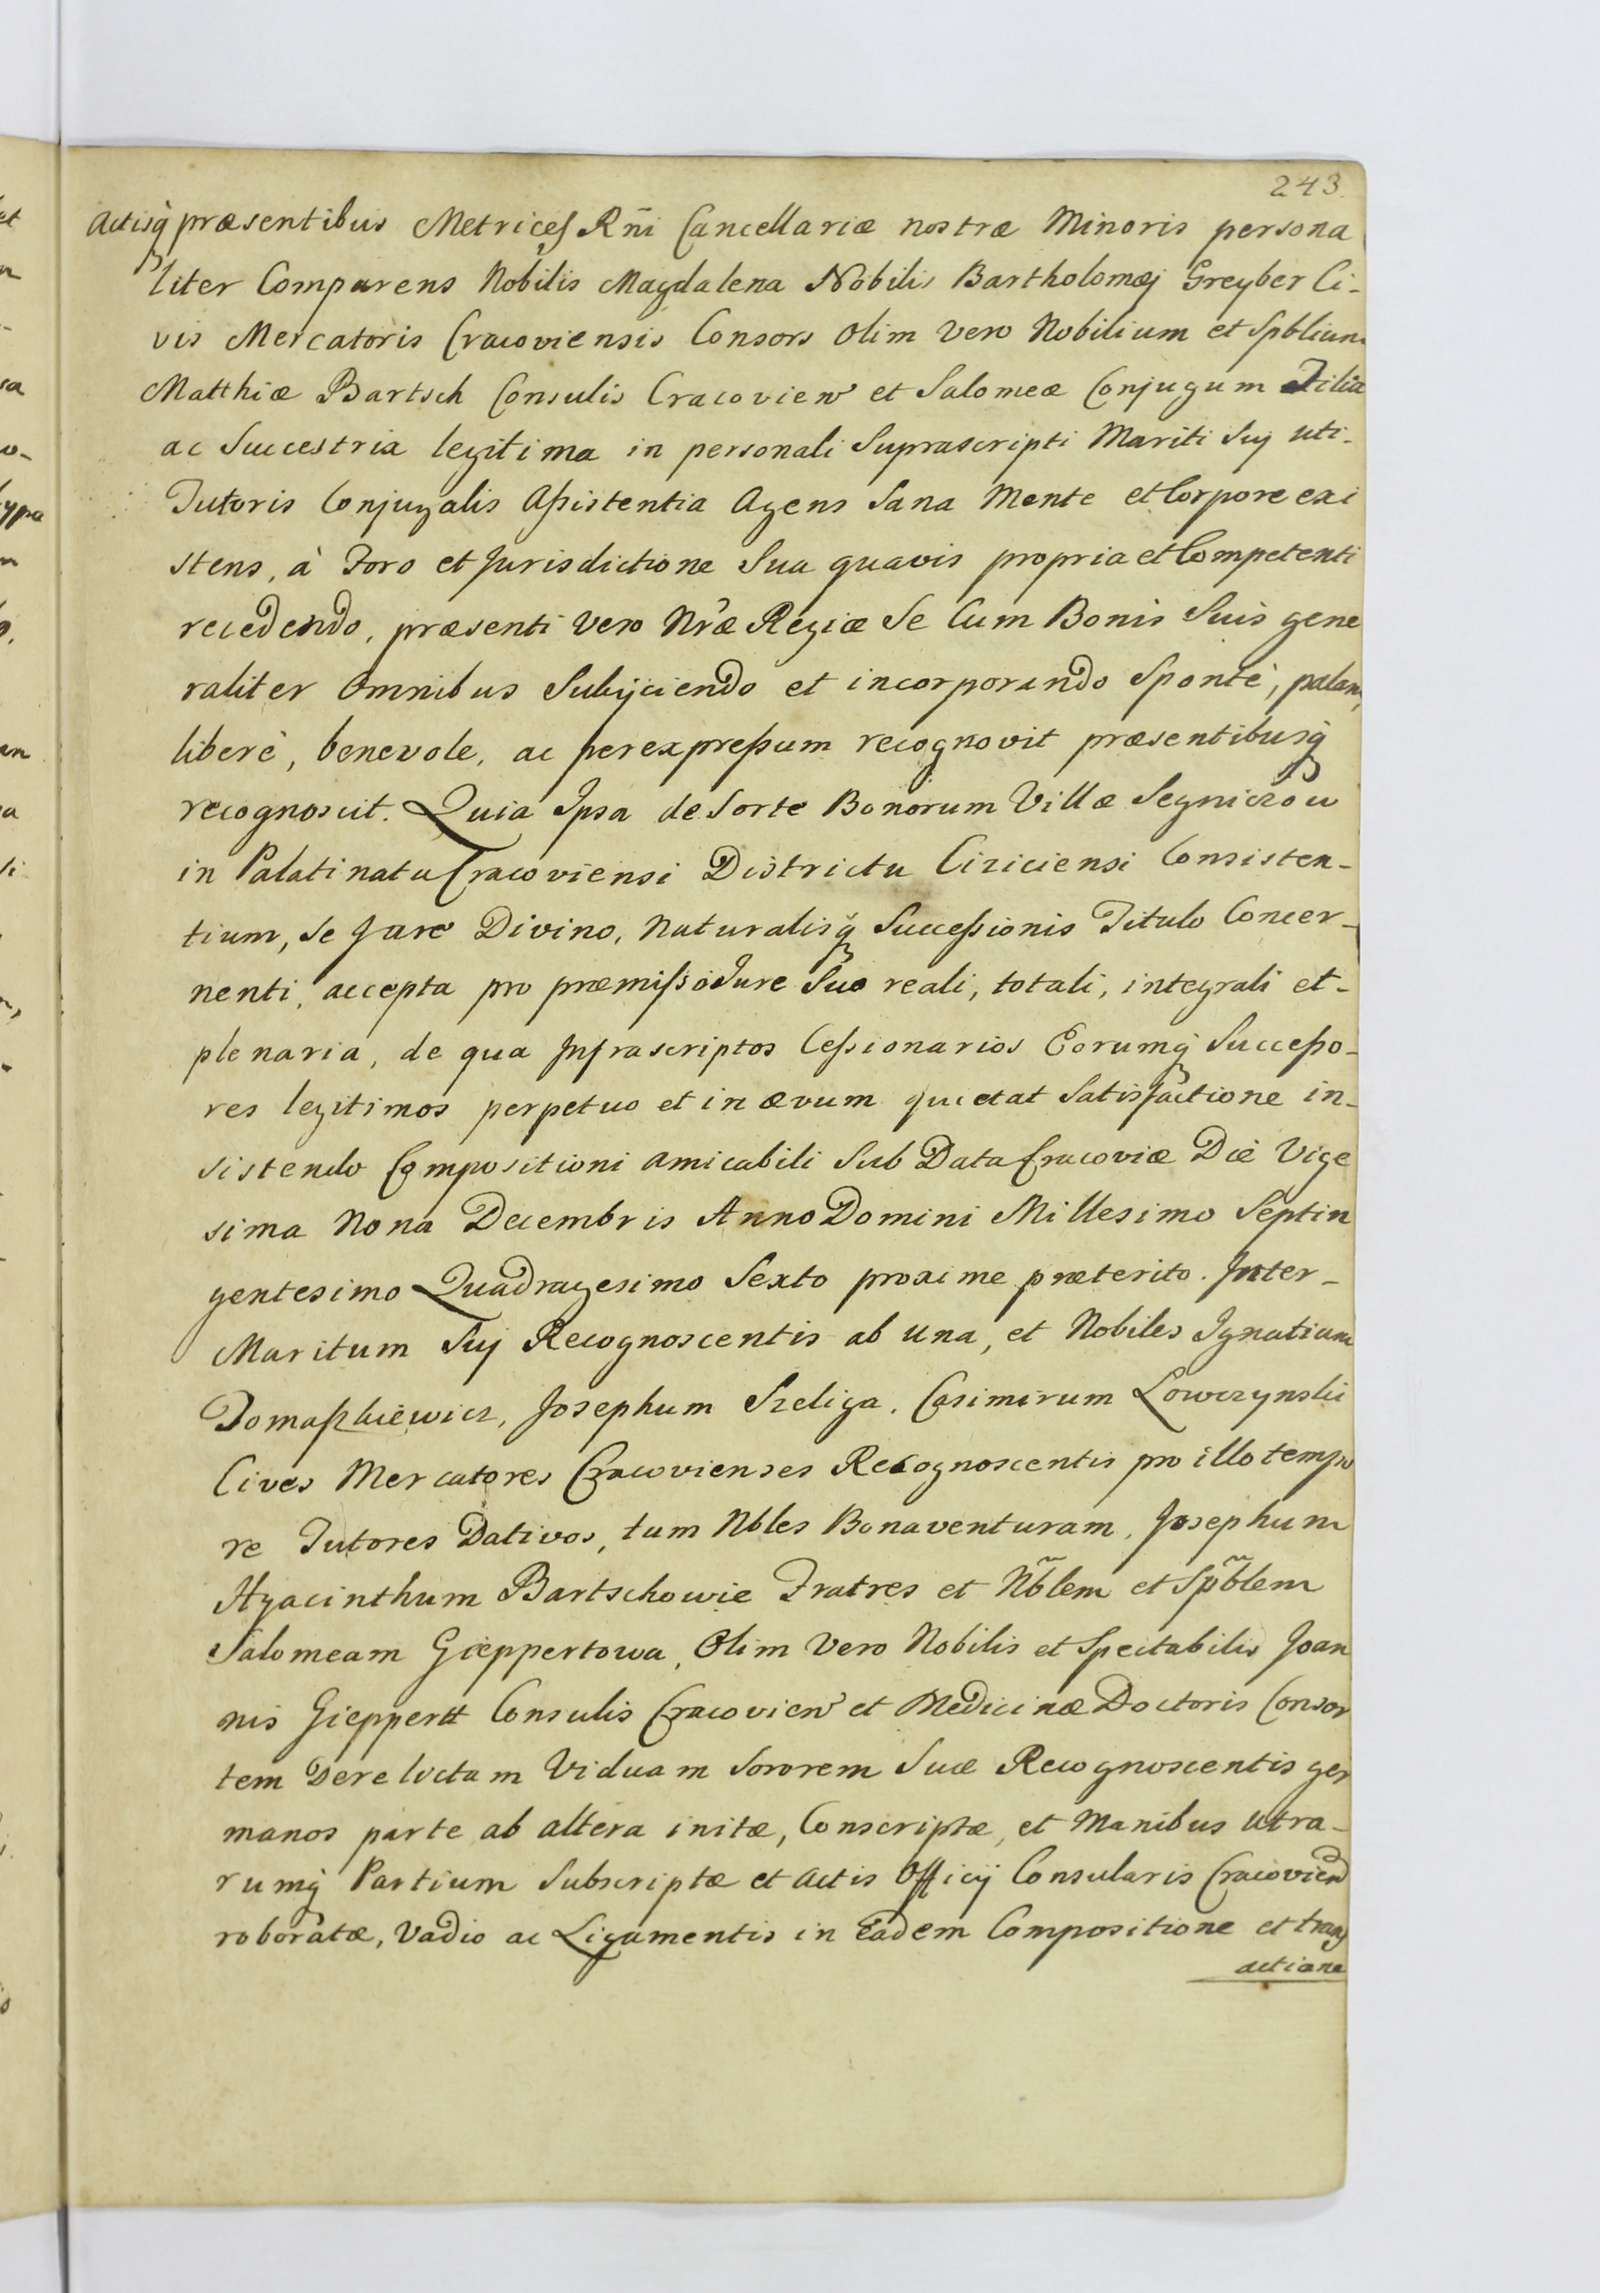 243.
Actisq́ præsentibus Metrices Rñi Cancellariæ nostræ Minoris persona
liter Comparens Nobilis Magdalena Nobilis Bartholomæj Greyber Ci-
vis Mercatoris Cracoviensis Consors Olim Vero Nobilium et Spblium
Matthiæ Bartsch Consulis Cracovien et Salomeæ Conjugum Filia
ac Succestrix legitima in personali Suprascripti Mariti Sui uti-
Tutoris Conjugalis Assistentia Agens Sana Mente et Corpore exi
stens, à Foro et Jurisdictione Sua quavis propria et Competenti
recedendo, præsenti Vero Nræ Regiæ Se Cum Bonis Suis gene
raliter Omnibus Subijciendo et incorporando Spontè, palam,
liberè, benevole, ac per expressum recognovit præsentibusq́
recognoscit. Quia Ipsa de Sorte Bonorum Villæ Segniczow
in Palatinatu Cracoviensi Districtu Ciziciensi Consisten-
tium, Se Jure Divino, Naturalisq́ Successionis Titulo Concer-
nenti, accepta pro præmisso Jure Suo reali, totali, integrali et-
plenaria, de qua Infrascriptos Cessionarios Eorumq́ Successo-
res legitimos perpetuo et in ævum quietat Satisfactione in-
sistendo Compositioni amicabili Sub Data Cracoviæ Die Vige
sima Nona Decembris Anno Domini Millesimo Septin
gentesimo Quadragesimo Sexto proxime præterito. Inter-
Maritum Sui Recognoscentis ab una, et Nobiles Ignatium
Tomaszkiewicz, Josephum Szeliga, Casimirum Lowczynski
Cives Mercatores Cracovienses Recognoscentis pro illo tempo
re Tutores Dativos, tum Nbles Bonaventuram, Josephum
Hyacinthum Bartschowie Fratres et Nb̃lem et Spb̃lem
Salomeam Gieppertowa, Olim Vero Nobilis et Spectabilis Joan
nis Gieppertt Consulis Cracovien et Medicinæ Doctoris Consor
tem Derelictam Viduam Sororem Suæ Recognoscentis ger
manos parte ab altera initæ, Conscriptæ, et Manibus Utra-
rumq́ Partium Subscriptæ et Actis Officij Consularis Cracovien
roboratæ, Vadio ac Ligamentis in Eadem Compositione et trans
actione